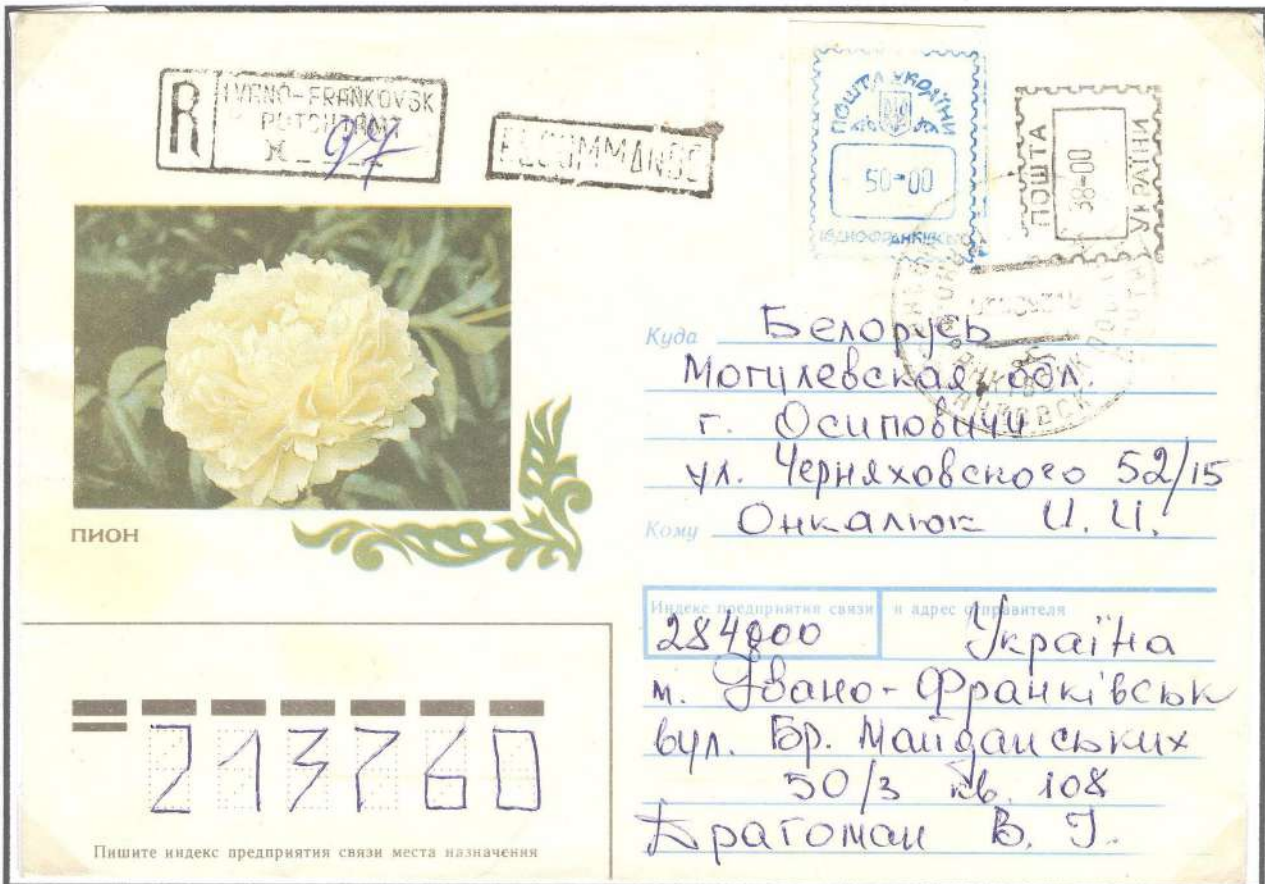 R
IVANO-FRANKOVSK
POTCHTAMT
N 97
RECOMMANDE
ПОШТА УКРАЇНИ
50-00
ІВАНОФРАНКІВСЬК
ПОШТА
38-00
УКРАЇНИ
ПИОН
Куда Белорусь
Могилевская обл.
г. Осиповичи
ул. Черняховского 52/15
Кому Онкалюк И. И.
Индекс предприятия связи и адрес отправителя
284000 Україна
м. Івано-Франківськ
вул. Бр. Майданських
50/3 кв. 108
Драгоман В. І.
213760
Пишите индекс предприятия связи места назначения